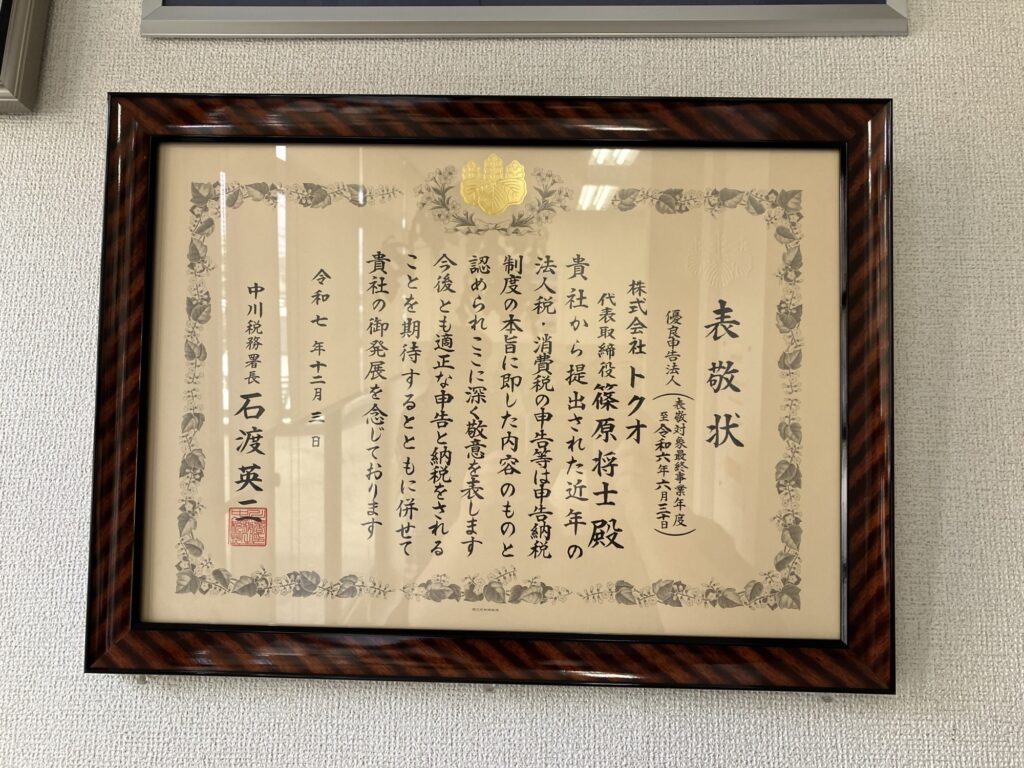 表敬状
優良申告法人(表敬対象最終事業年度
至令和六年六月三十日)
株式会社トクオ
代表取締役 篠原将士 殿
貴社から提出された近年の
法人税・消費税の申告等は申告納税
制度の本旨に即した内容のものと
認められここに深く敬意を表します
今後とも適正な申告と納税をされる
ことを期待するとともに併せて
貴社の御発展を念じております
令和七年十二月三日
中川税務署長 石渡英二